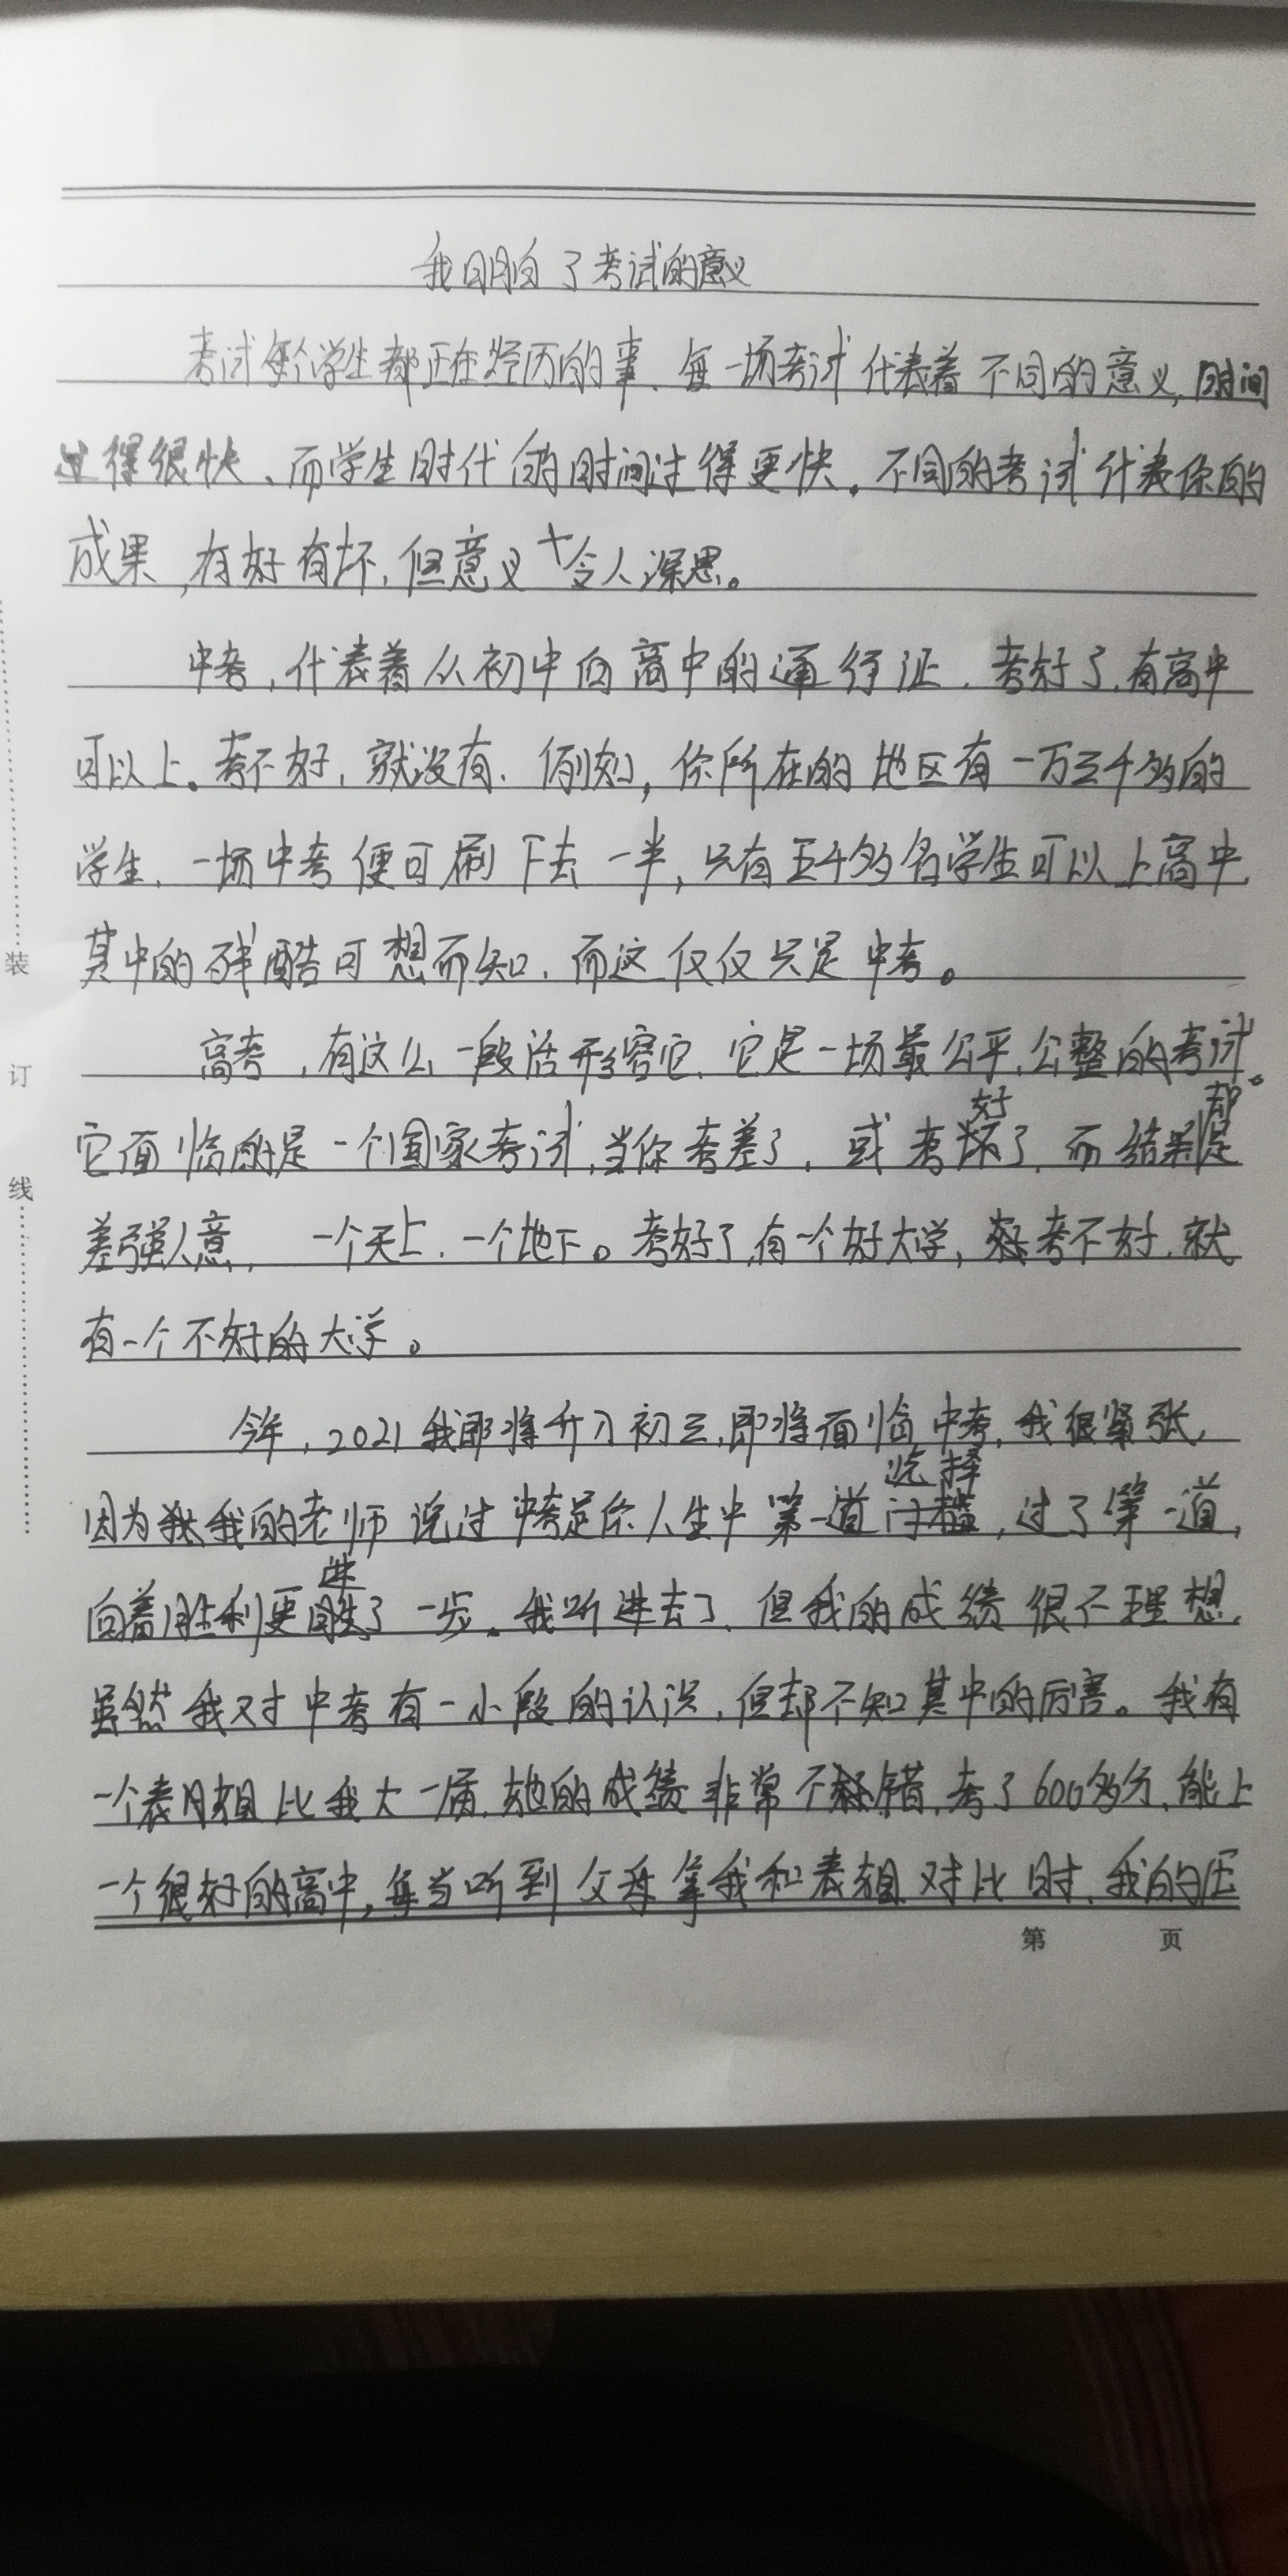 我明白了考试的意义
考试每个学生都正在经历的事、每一场考试代表着不同的意义,时间
过得很快、而学生时代的时间过得更快。不同的考试代表你的
成果,有好有坏,但意义十令人深思。
中考,代表着从初中向高中的通行证、考好了,有高中
可以上。考不好,就没有、例如,你所在的地区有一万三千多的
学生、一场中考便可刷下去一半,只有五千多名学生可以上高中,
其中的残酷可想而知、而这仅仅只是中考。
高考,有这么一段话形容它、它是一场最公平,公整的考试。
它面临的是一个国家考试,当你考差了,或考好了、而结果却是
差强人意,一个天上、一个地下。考好了,有一个好大学,考不好、就
有一个不好的大学。
今年,2021我即将升入初三,即将面临中考,我很紧张,
因为我的老师说过中考是你人生中第一道选择,过了第一道,
向着胜利更进了一步。我听进去了、但我的成绩很不理想,
虽然我对中考有一小段的认识,但却不知其中的厉害。我有
一个表姐比我大一届,她的成绩非常不错,考了600多分,能上
一个很好的高中,每当听到父母拿我和表姐对比时、我的压
第 页
装
订
线